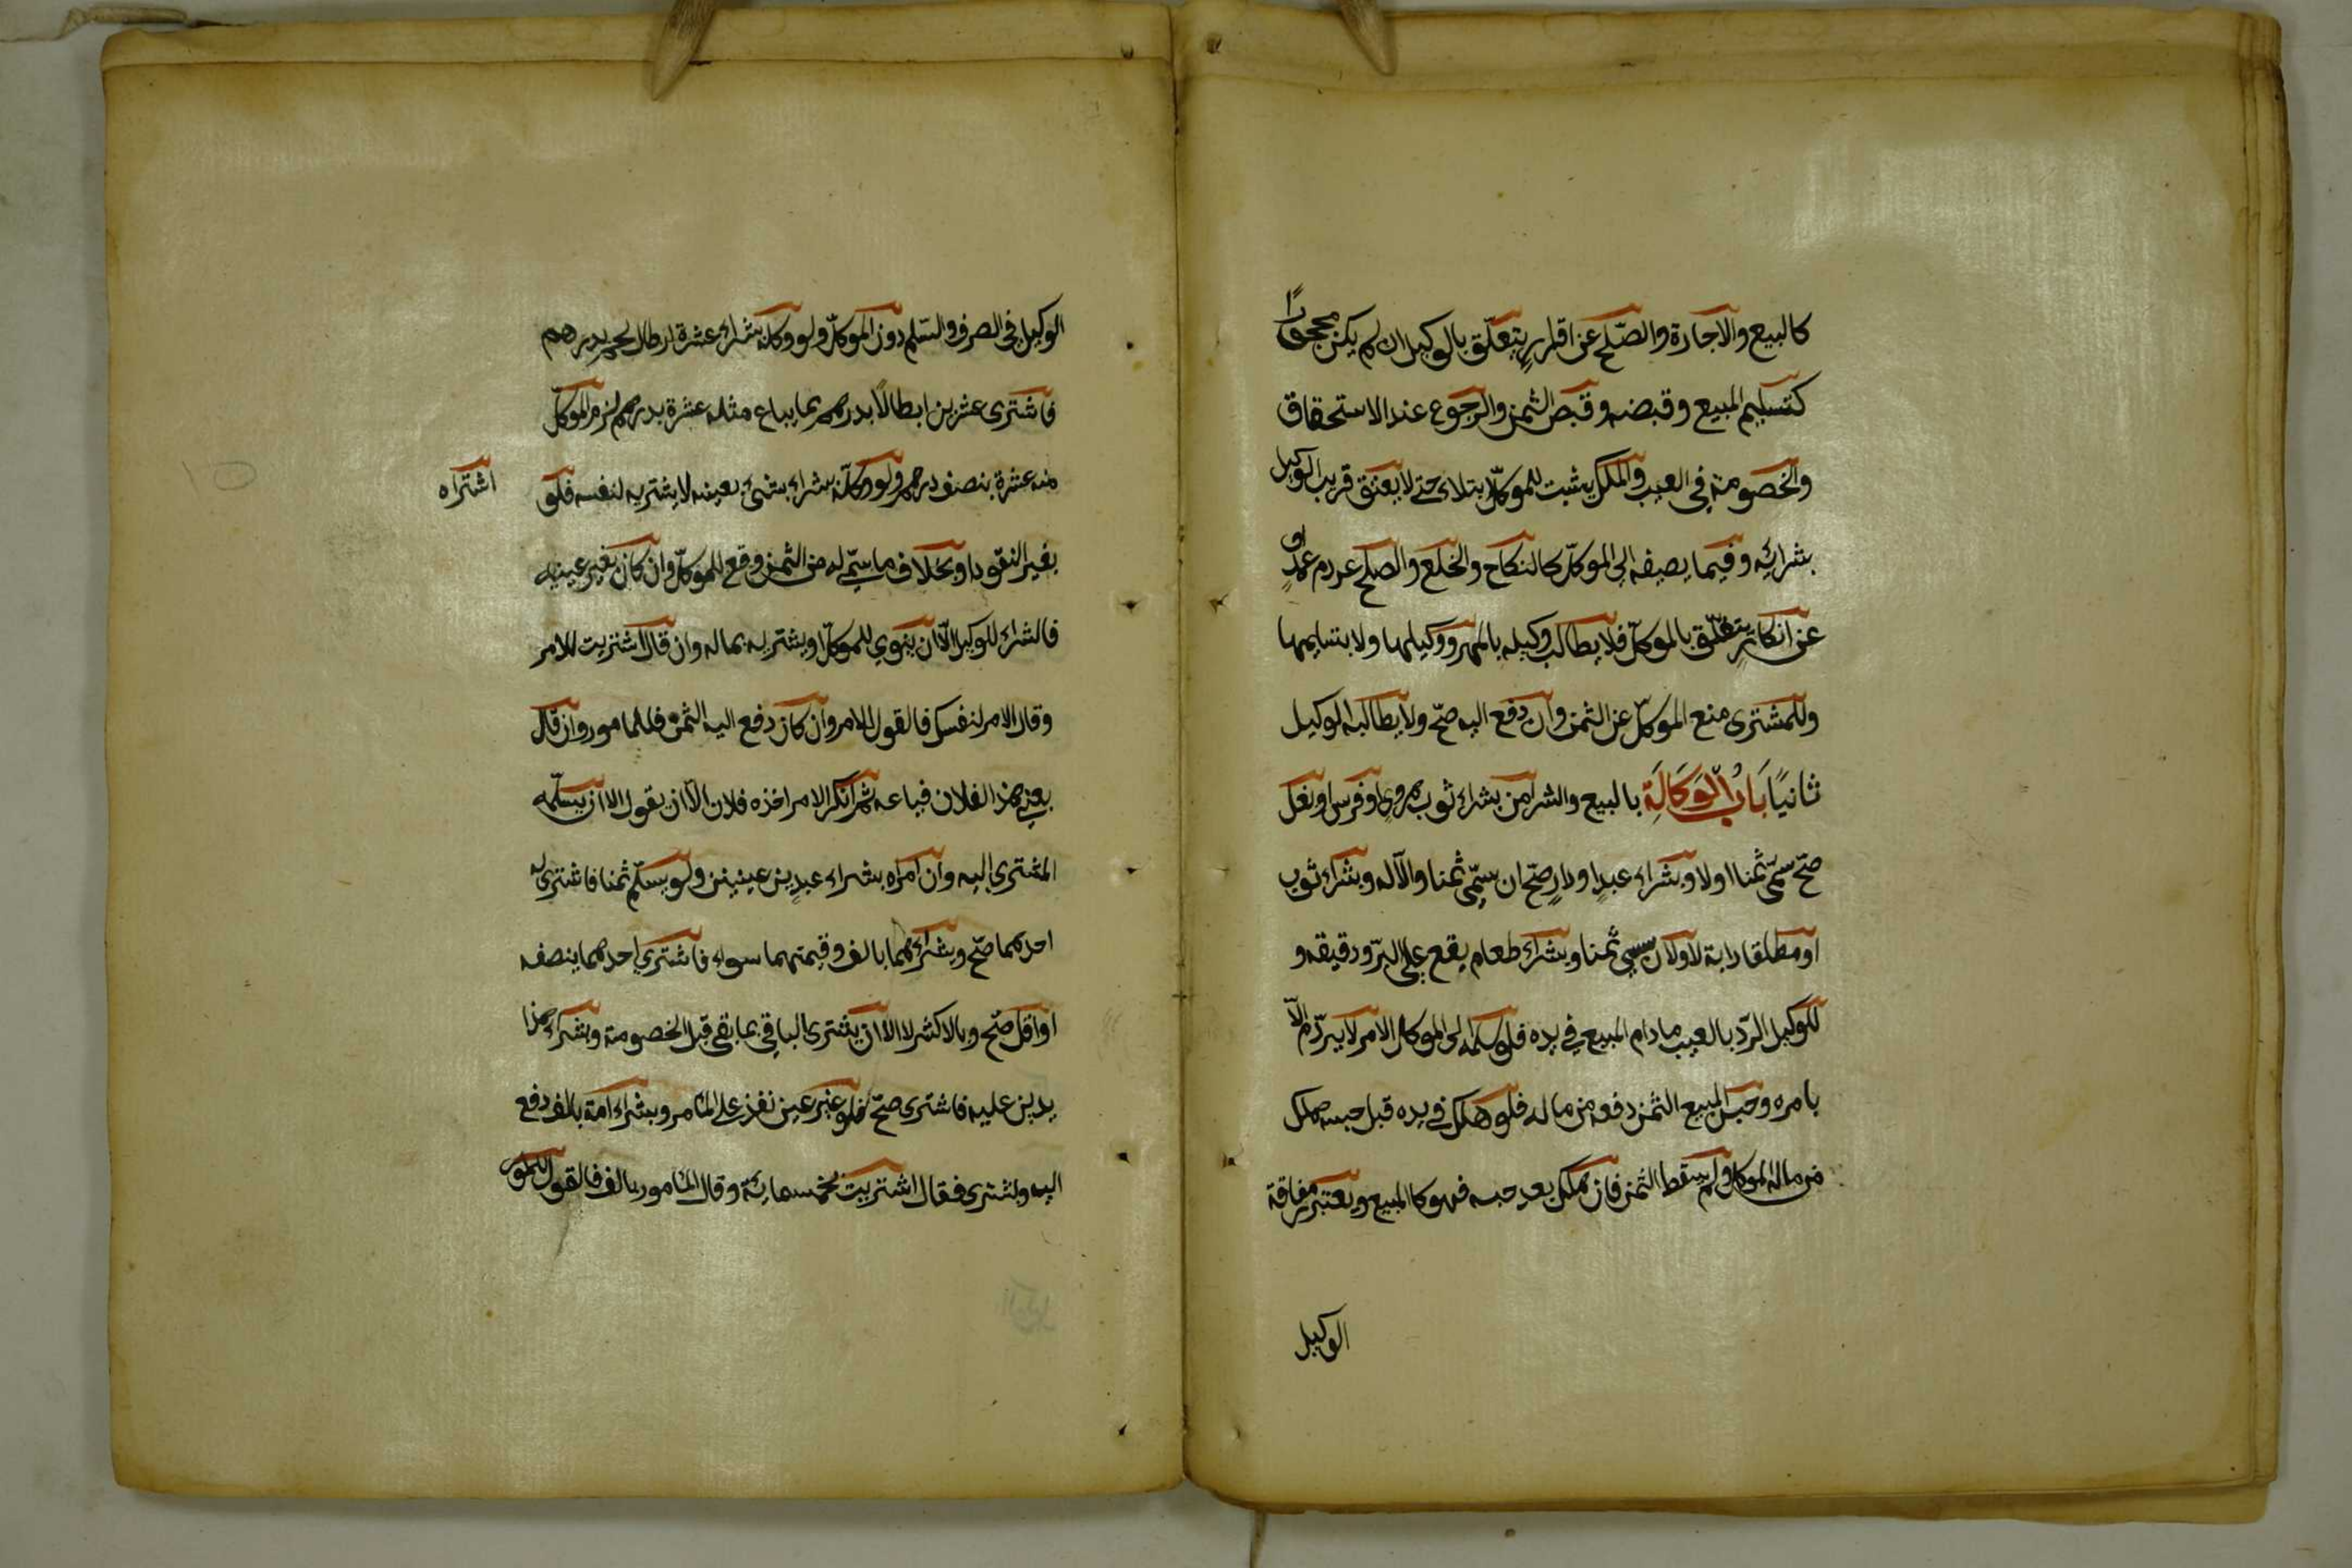 كالبيع والاجارة والصّلح عن اقرارٍ يتعلّق بالوكيل ان لم يكن محجورًا
كتسليم المبيع وقبضه وقبض الثمن والرجوع عند الاستحقاق
والخصومة في العيب والملك يثبت للموكلّ ابتداء حتى لا يعتق قريب الوكيل
بشرائه وفيما يضيفه الى الموكلّ كالنكاح والخلع والصلح عن دم عمدٍ او
عن انكارٍ يتعلّق بالموكلّ فلا يطالب وكيله بالمهر ووكيلها ولا بتسليمها
وللمشترى منع الموكلّ عن الثمن وان دفع اليه صحّ ولا يطالبه الوكيل
ثانيًا بَابُ الْوَكَالَةِ بالبيع والشرا من بشراء ثوب هروىٍ او فرس او بغل
صحّ سمّى ثمنا اولا وبشراء عبدٍ او دارٍ صحّ ان سمّى ثمنا والاّ لا وبشراء ثوب
او مطلقا دابة لا ولان سمى ثمنا وبشراء طعام يقع على البرّ ودقيقه و
للوكيل الردّ بالعيب مادام المبيع في يده فلو سلمه الى الموكل الامر لا يردّه الاّ
بامره وحبس المبيع الثمن دفعه من ماله فلو هلك في يده قبل حبسه هلك
من مال الموكل ولم يسقط الثمن فان هلك بعد حبسه فهو كالمبيع ويعتبر مفارقة
الوكيل
الوكيل في الصرف والسّلم دون الموكلّ ولو وكله بشراء عشرة ارطال لحم بدرهم
فاشترى عشرين ابطالًا بدرهم مما يباع مثله عشرة بدرهم لزم الموكلّ
منه عشرة بنصف درهم ولو وكلّه بشراء بشئ بعينه لا يشتريه لنفسه فلو
اشتراه
بغير النقود او بخلاف ما سمّى له من الثمن وقع للموكلّ وان كان بغير عينه
فالشراء للوكيل الاّ ان ينوي للموكلّ او يشتريه بماله وان قال اشتريت للامر
وقال الامر لنفسك فالقول للامر وان كان دفع اليه الثمن فللمامور وان قال
بعنى هذا لفلان فباعه ثم انكر الامر اخذه فلان الاّ ان يقول الا ان يسلّمه
المشترى اليه وان امراه بشراء عبدين عينين ولو يسلّم ثمنا فاشترى له
احدهما صحّ وبشرائهما بالف وقيمتهما سواء فاشترى احدهما بنصفه
او اقل صحّ وبالاكثر لا الا ان يشترى الباقي بما بقى قبل الخصومة وبشراء هذا
بدين عليه فاشترى صحّ فلو غير عين نفذ على المامر وبشراء امة بالف دفع
اليه ولشترى فقال اشتريت بخمسمائة وقال المامور بالف فالقول للمامور